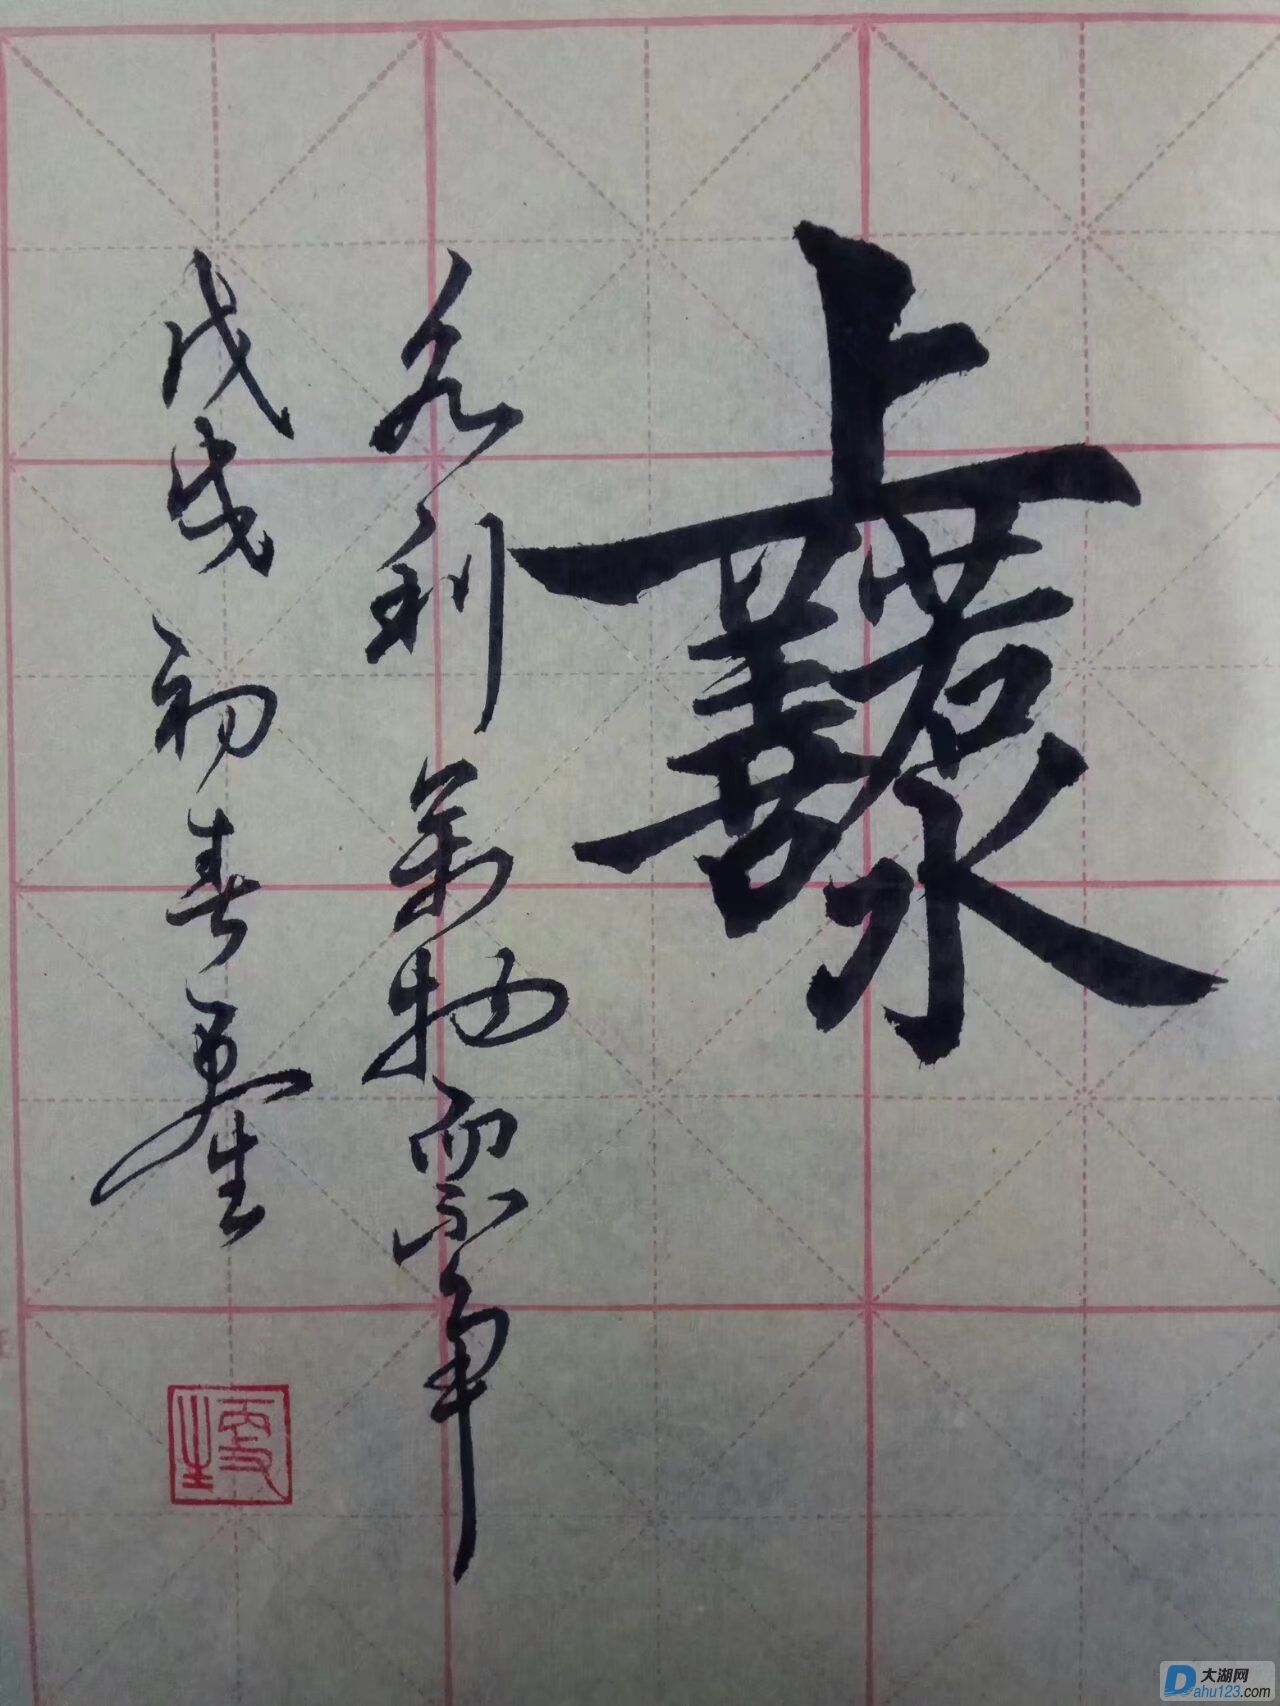 上善若水
水利萬物而不争
戊戌初春夏生
大湖网
Dahu123.com